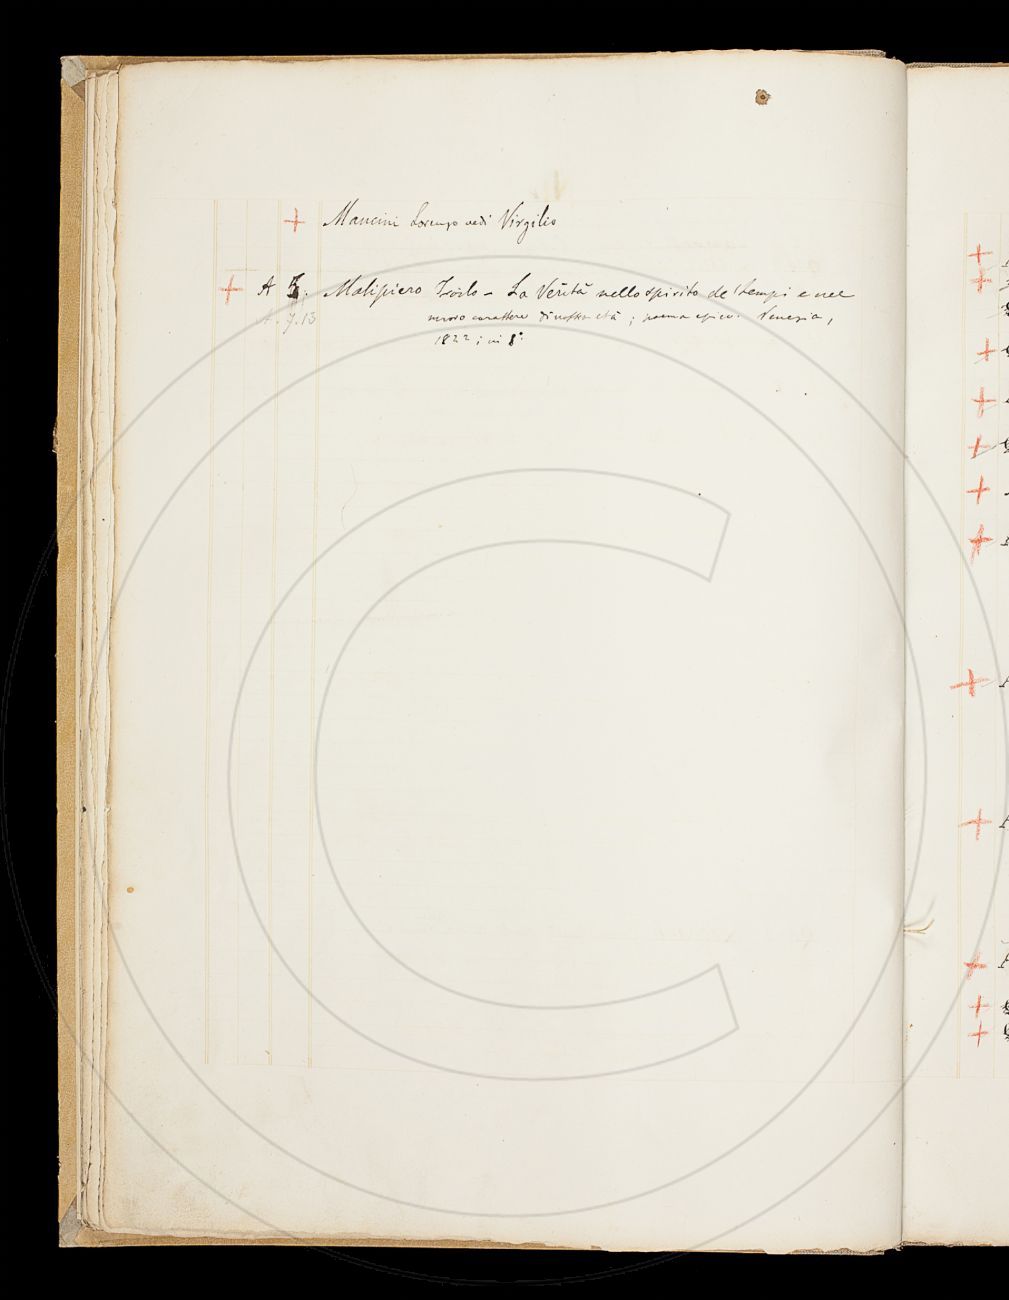 + Mancini Lorenzo vedi Virgilio
+ A 5. Malipiero Troilo - La Verità nello spirito de' tempi e nel
A. 7. 13 nuovo carattere di nostra età ; poema epico. Venezia,
1822 ; in 8°.